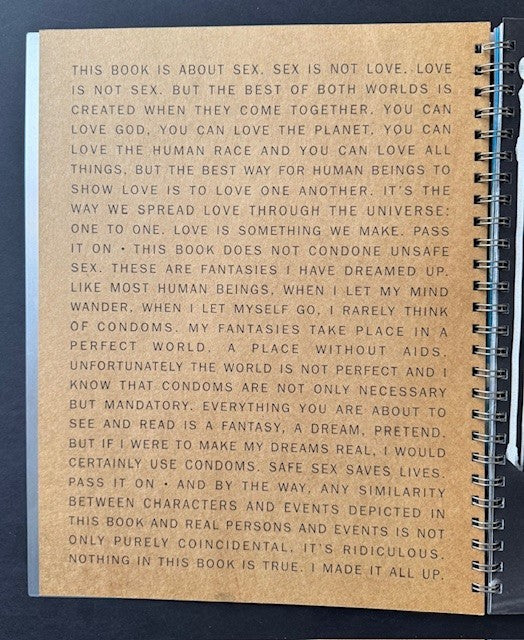 THIS BOOK IS ABOUT SEX. SEX IS NOT LOVE. LOVE
IS NOT SEX. BUT THE BEST OF BOTH WORLDS IS
CREATED WHEN THEY COME TOGETHER. YOU CAN
LOVE GOD, YOU CAN LOVE THE PLANET, YOU CAN
LOVE THE HUMAN RACE AND YOU CAN LOVE ALL
THINGS, BUT THE BEST WAY FOR HUMAN BEINGS TO
SHOW LOVE IS TO LOVE ONE ANOTHER. IT'S THE
WAY WE SPREAD LOVE THROUGH THE UNIVERSE:
ONE TO ONE. LOVE IS SOMETHING WE MAKE. PASS
IT ON • THIS BOOK DOES NOT CONDONE UNSAFE
SEX. THESE ARE FANTASIES I HAVE DREAMED UP.
LIKE MOST HUMAN BEINGS, WHEN I LET MY MIND
WANDER, WHEN I LET MYSELF GO, I RARELY THINK
OF CONDOMS. MY FANTASIES TAKE PLACE IN A
PERFECT WORLD, A PLACE WITHOUT AIDS.
UNFORTUNATELY THE WORLD IS NOT PERFECT AND I
KNOW THAT CONDOMS ARE NOT ONLY NECESSARY
BUT MANDATORY. EVERYTHING YOU ARE ABOUT TO
SEE AND READ IS A FANTASY, A DREAM, PRETEND.
BUT IF I WERE TO MAKE MY DREAMS REAL, I WOULD
CERTAINLY USE CONDOMS. SAFE SEX SAVES LIVES.
PASS IT ON • AND BY THE WAY, ANY SIMILARITY
BETWEEN CHARACTERS AND EVENTS DEPICTED IN
THIS BOOK AND REAL PERSONS AND EVENTS IS NOT
ONLY PURELY COINCIDENTAL, IT'S RIDICULOUS.
NOTHING IN THIS BOOK IS TRUE. I MADE IT ALL UP.